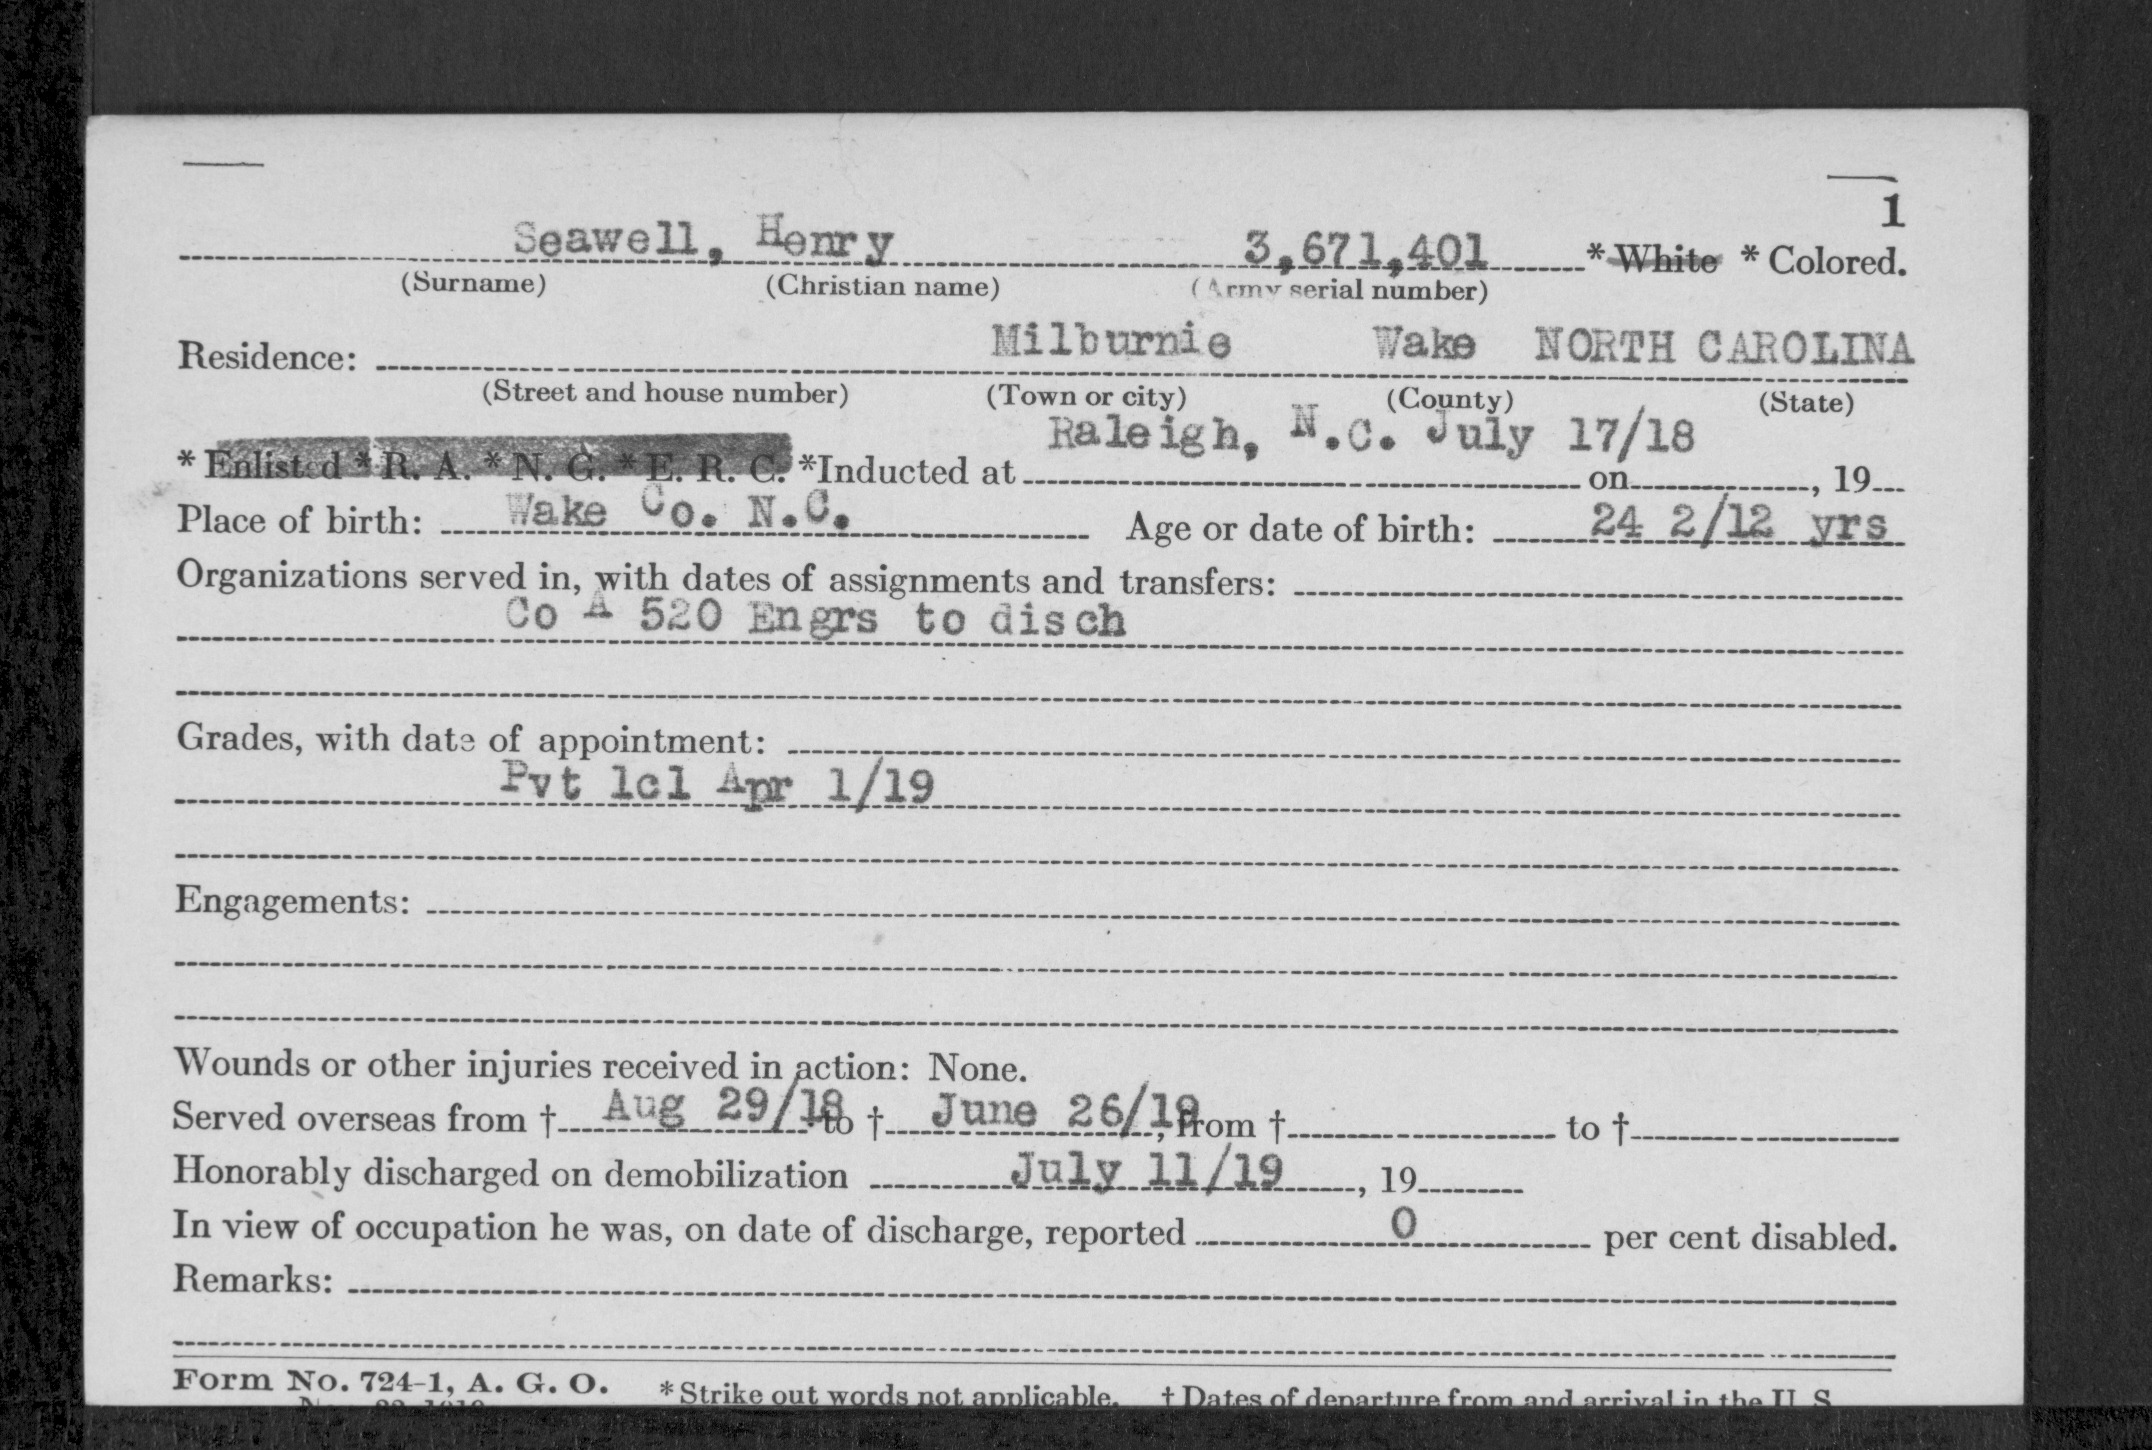 1
Seawell, Henry 3,671,401 * White * Colored.
(Surname) (Christian name) (Army serial number)
Residence: Milburnie Wake NORTH CAROLINA
(Street and house number) (Town or city) (County) (State)
Raleigh, N.C. July 17/18
* Enlisted * R. A. * N. G. * E. R. C. *Inducted at on , 19
Place of birth: Wake Co. N.C. Age or date of birth: 24 2/12 yrs
Organizations served in, with dates of assignments and transfers:
Co A 520 Engrs to disch
Grades, with date of appointment:
Pvt 1cl Apr 1/19
Engagements:
Wounds or other injuries received in action: None.
Served overseas from † Aug 29/18 to † June 26/19, from † to †
Honorably discharged on demobilization July 11/19 , 19
In view of occupation he was, on date of discharge, reported 0 per cent disabled.
Remarks:
Form No. 724-1, A. G. O. * Strike out words not applicable. † Dates of departure from and arrival in the U. S.